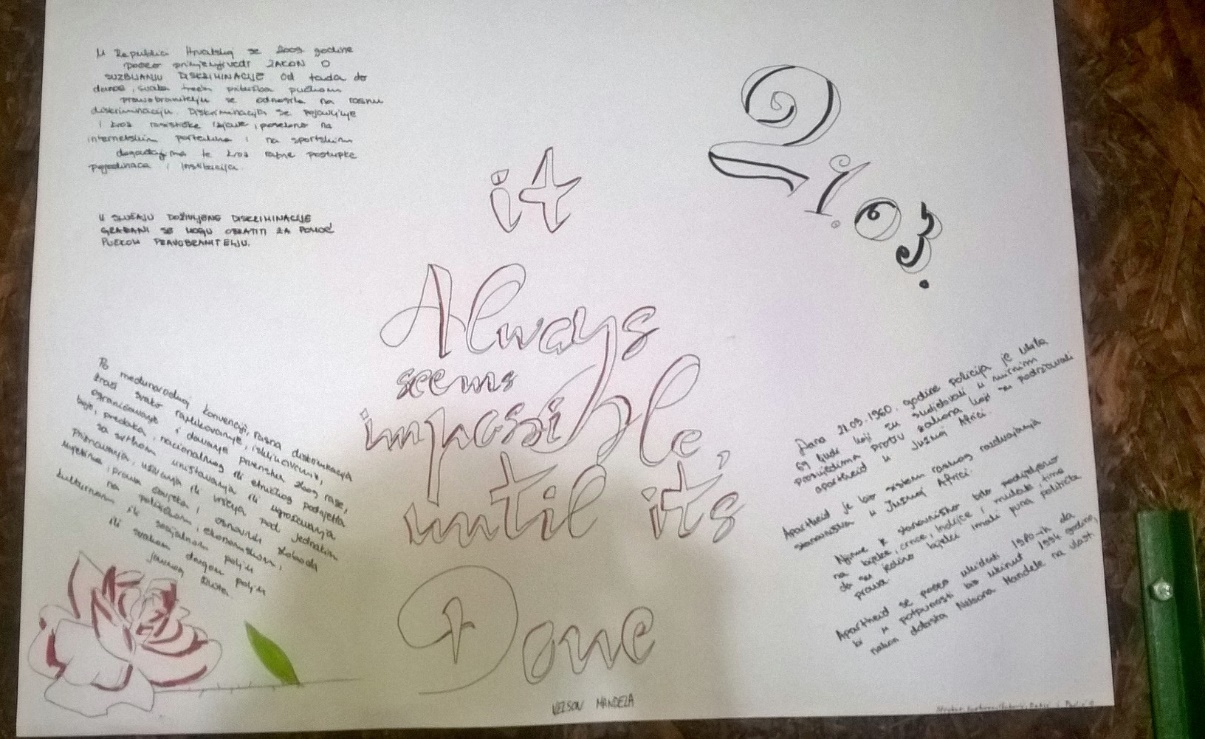 U Republici Hrvatskoj se 2009. godine
počeo primjenjivati ZAKON O
SUZBIJANJU DISKRIMINACIJE Od tada do
danas, svaka treća pritužba pučkom
pravobranitelju se odnosila na rasnu
diskriminaciju. Diskriminacija se pojavljuje
i kroz rasističke izjave, posebno na
internetskim portalima i na sportskim
događajima te kroz razne postupke
pojedinaca i institucija.
U SLUČAJU DOŽIVLJENE DISKRIMINACIJE
GRAĐANI SE MOGU OBRATITI ZA POMOĆ
PUČKOM PRAVOBRANITELJU.
21.03.
it
Always
seems
impossible,
until its
Done
NELSON MANDELA
Po međunarodnoj konvenciji, rasna diskriminacija
znači svako razlikovanje, isključivanje,
ograničavanje i davanje prvenstva zbog rase,
boje, predaka, nacionalnog ili etničkog podrijetla
sa svrhom uništavanja ili ugrožavanja
priznavanja, uživanja ili vršenja pod jednakim
uvjetima, prava čovjeka i osnovnih sloboda
na političkom, ekonomskom,
kulturnom ili socijalnom polju
ili svakom drugom polju
javnog života
Dana 21.03.1960. godine policija je ubila
69 ljudi koji su sudjelovali u mirnim
prosvjedima protiv zakona koji su podržavali
apartheid u Južnoj Africi.
Apartheid je bio sistem rasnog razdvajanja
stanovništva u Južnoj Africi.
Njime je stanovništvo bilo podijeljeno
na bijelce, crnce, Indijce i mulate, time
da su jedino bijelci imali puna politička
prava.
Apartheid se počeo ukidati 1980-ih, da
bi u potpunosti bio ukinut 1994. godine,
nakon dolaska Nelsona Mandele na vlast